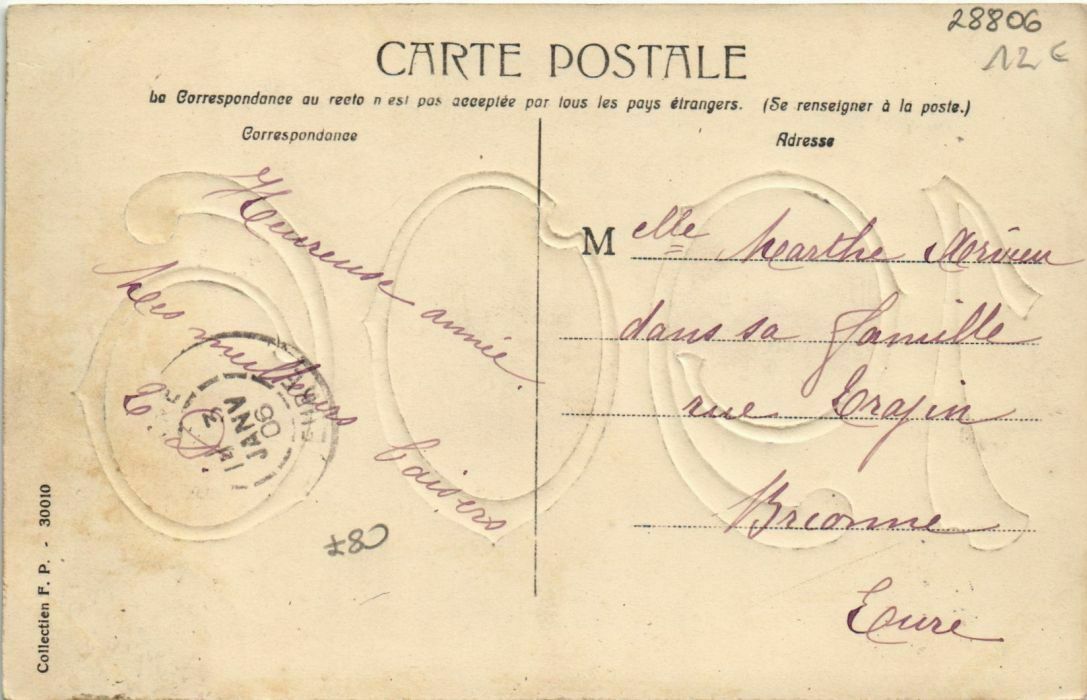 28806
12€
CARTE POSTALE
La Correspondance au recto n'est pas acceptée par tous les pays étrangers. (Se renseigner à la poste.)
Correspondance
Adresse
Heureuse année.
Mes meilleurs baisers
E. D.
3
JANV
06
EURE
780
Melle Marthe
dans sa famille
rue
Brionne
Eure
Collection F. P. - 30010